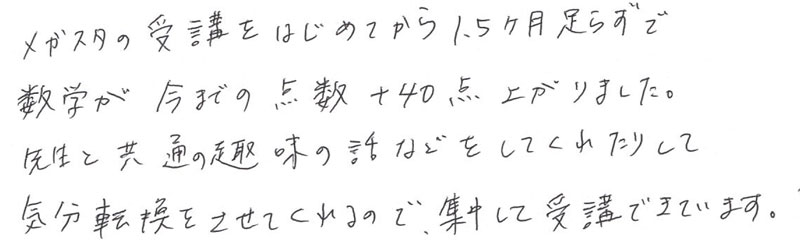 メガスタの受講をはじめてから1.5ヶ月足らずで
数学が今までの点数+40点上がりました。
先生と共通の趣味の話などをしてくれたりして
気分転換をさせてくれるので、集中して受講できています。